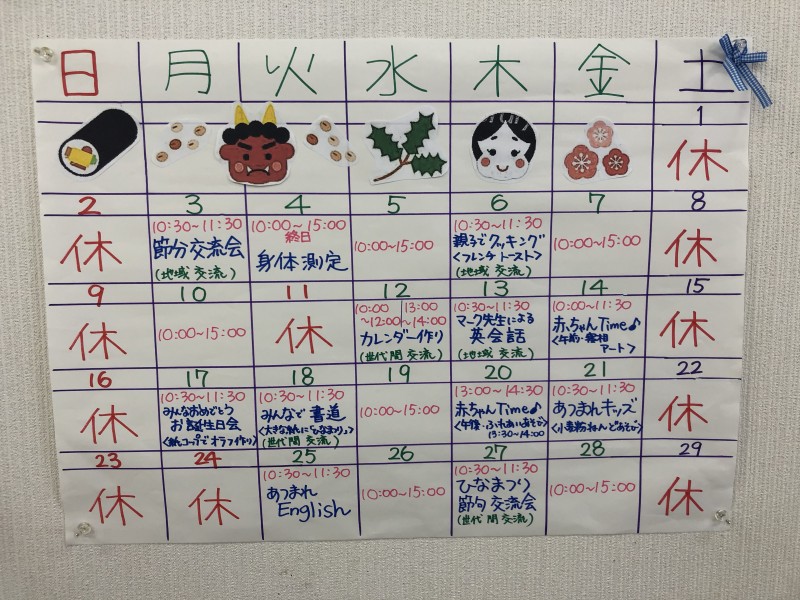 日 月 火 水 木 金 土
1
休
2 3 4 5 6 7 8
休
10:30~11:30
節分交流会
(地域交流)
10:00~15:00
終日
身体測定
10:00~15:00
10:30~11:30
親子でクッキング
<フレンチトースト>
(地域交流)
10:00~15:00
休
9 10 11 12 13 14 15
休
10:00~15:00
休
10:00 13:00
~12:00 ~14:00
カレンダー作り
(世代間交流)
10:30~11:30
マーク先生による
英会話
(地域交流)
10:00~11:30
赤ちゃんTime♪
アート>
休
16 17 18 19 20 21 22
休
10:30~11:30
みんなおめでとう
お誕生日会
<紙コップでオラフ作り>
10:30~11:30
みんなで書道
<大きな紙に「ひなまつり」>
(世代間交流)
10:00~15:00
13:00~14:30
赤ちゃんTime♪
<午後・ふれあいあそび>
13:30~14:00
10:30~11:30
あつまれキッズ
<小麦粉ねんどあそび>
休
23 24 25 26 27 28 29
休
休
10:30~11:30
あつまれ
English
10:00~15:00
10:30~11:30
ひなまつり
節句交流会
(世代間交流)
10:00~15:00
休